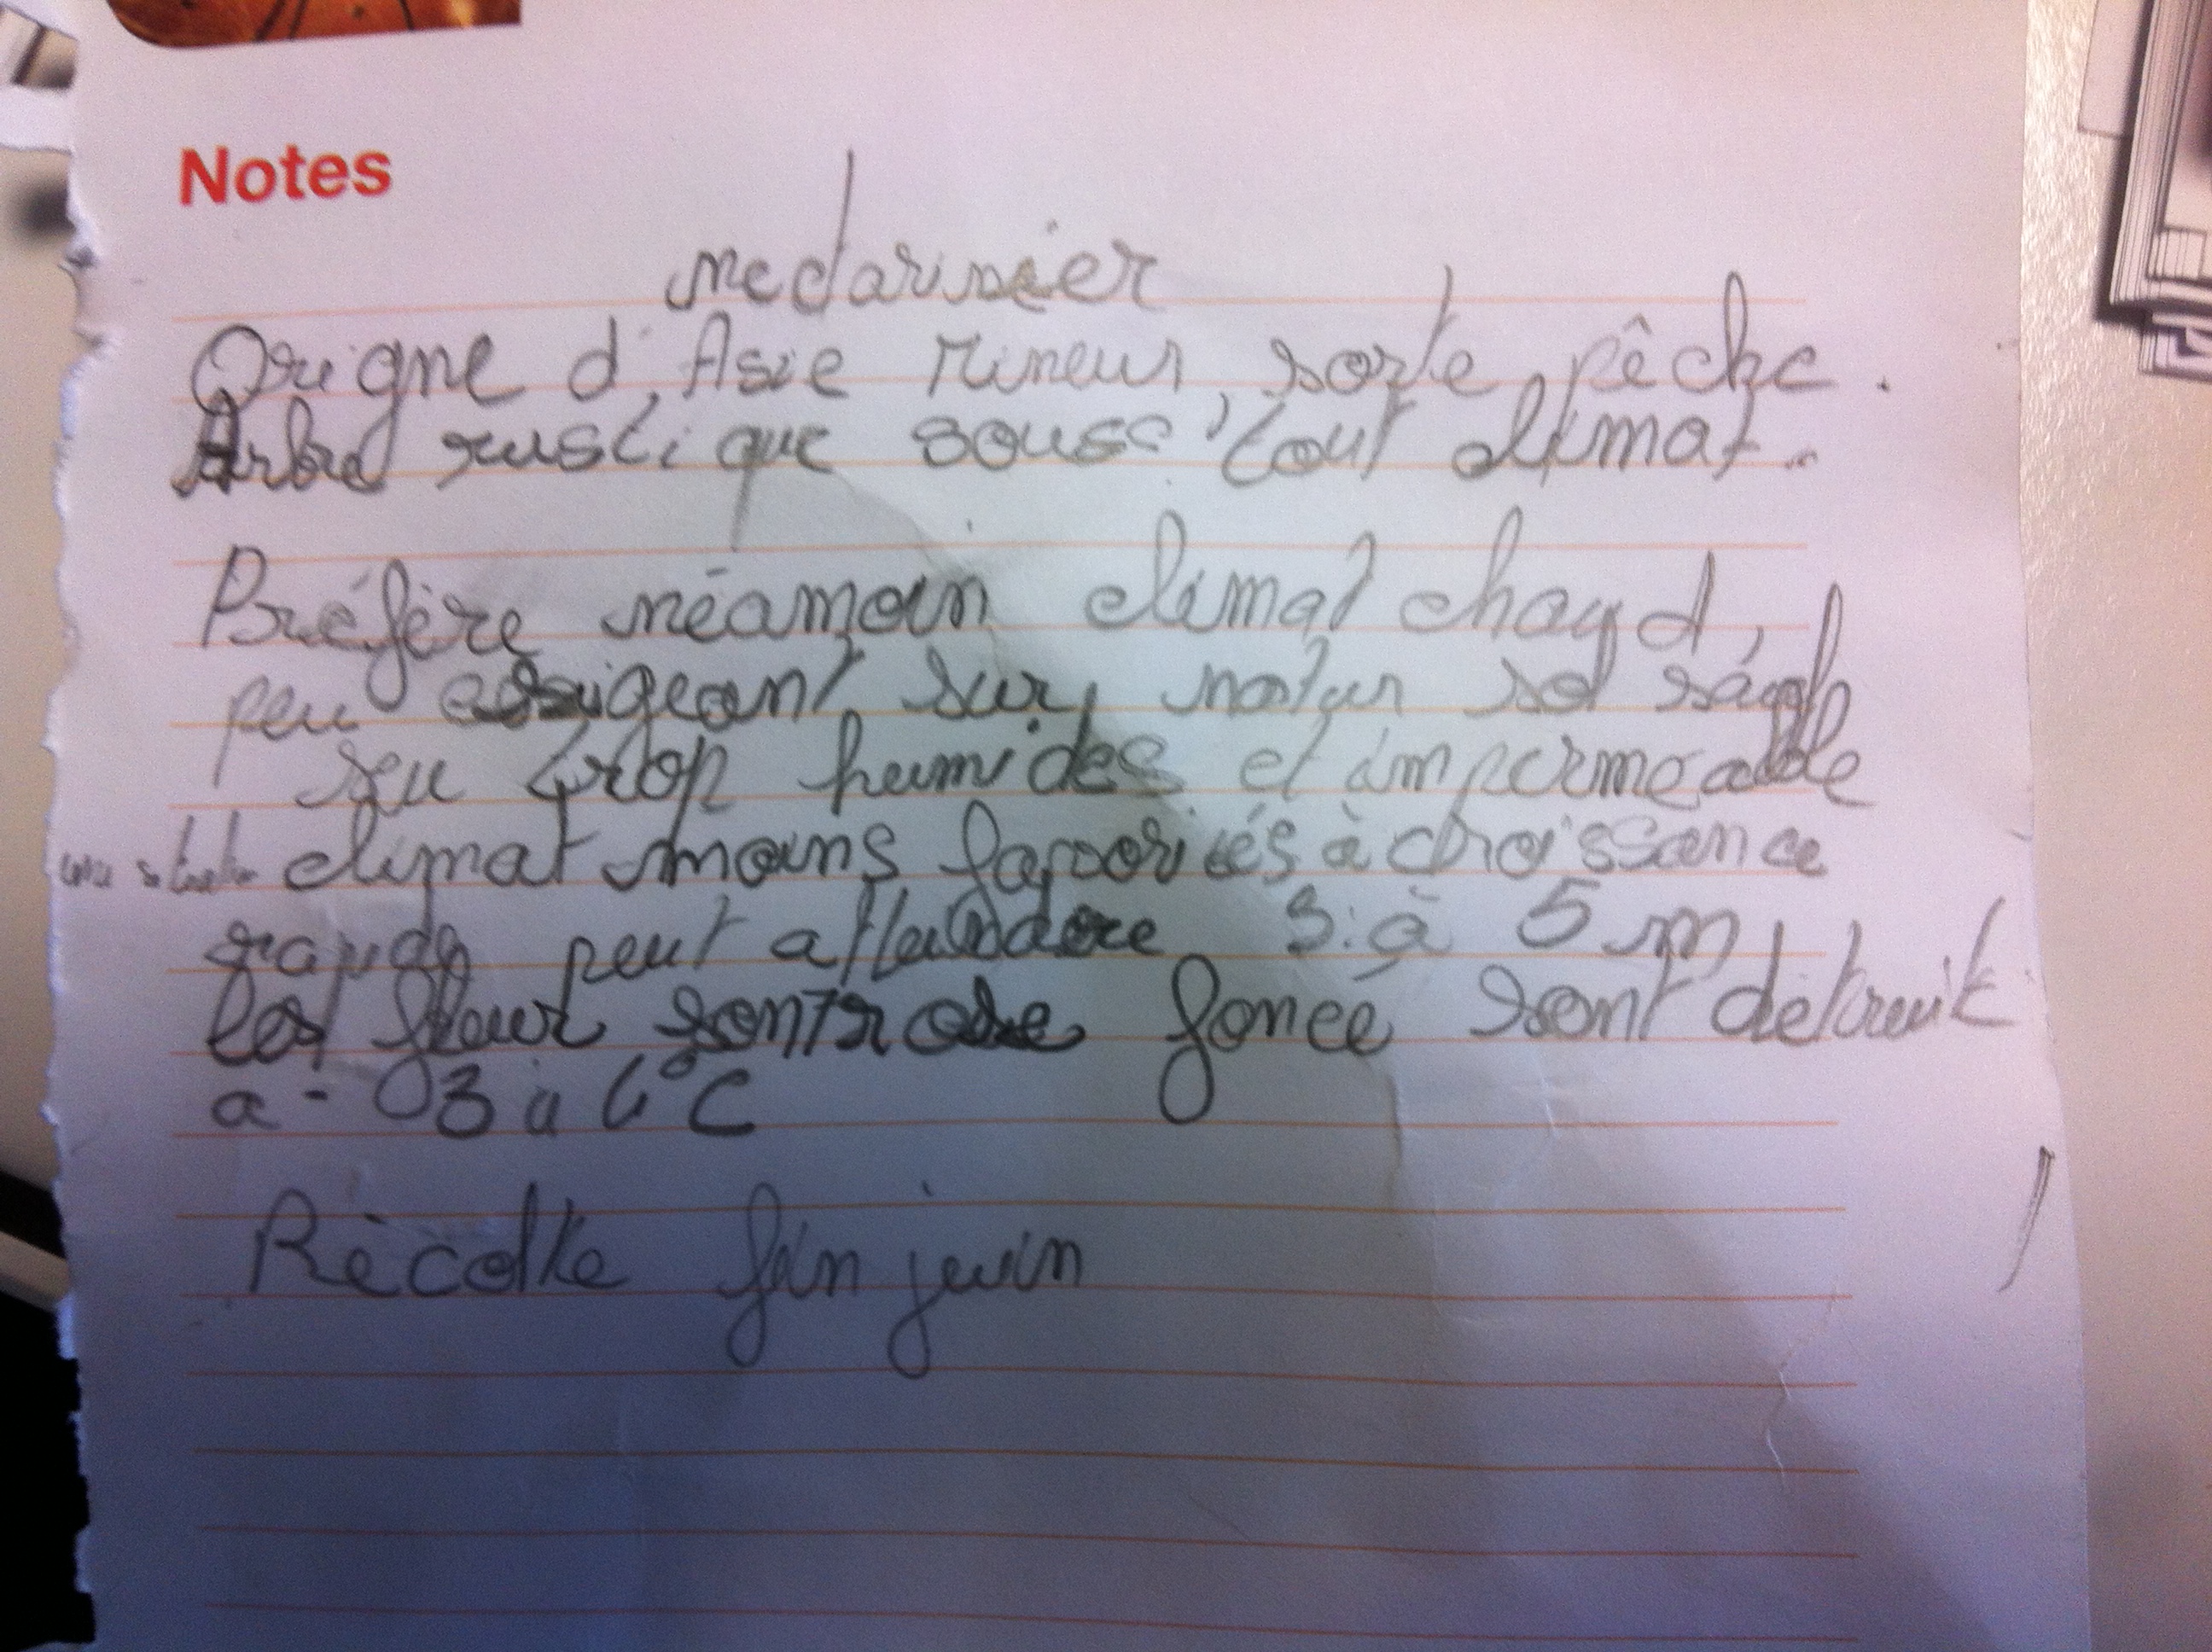 Notes
nedarinier
Origne d'Asie Mineur, sorte pêche.
Arbre rustique souss tout climat.
Préfère néamoin climat chaud,
peu exsigeant sur natur sol
trop humides et impermeable
climat moins favorisés à croissance
rapide peut atteindre 3 à 5 m
les fleur sont rose foncé sont détruit
a - 3 a 4°C
Récolte fin juin